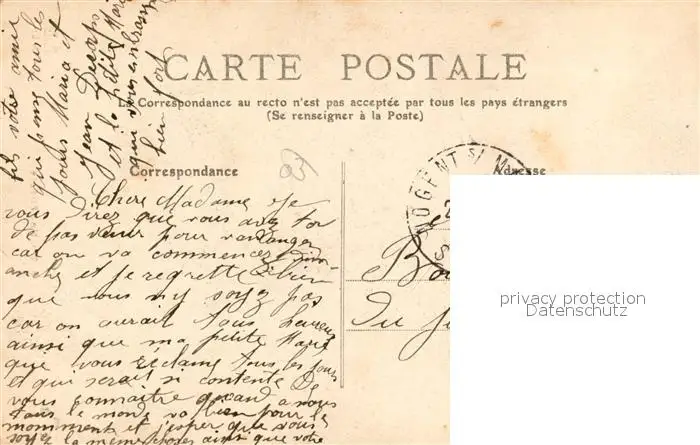 CARTE POSTALE
La Correspondance au recto n'est pas acceptée par tous les pays étrangers
(Se renseigner à la Poste)
Correspondance
Adresse
Chere Madame Je
vous direz que vous avez tor
de pas venir pour vandanger
car on va commencer Dim-
anche et je regrette bien
que vous ny soyez pas
car on aurait tous heureux
ainsi que ma petite Marie
que vous reclame tous les jours
et que serait si contente De
vous connaitre quand a nous
tous le monde va bien pour le
momment et j'esper que vous
soyez la meme choses ainsi que votre
fils votre amie
qui pense tous les
jours Maria et
Jean Decorps
et la petite Marie
qui vous embrasse
bien fort
93
NOGENT S/ M
Bo
du
privacy protection
Datenschutz